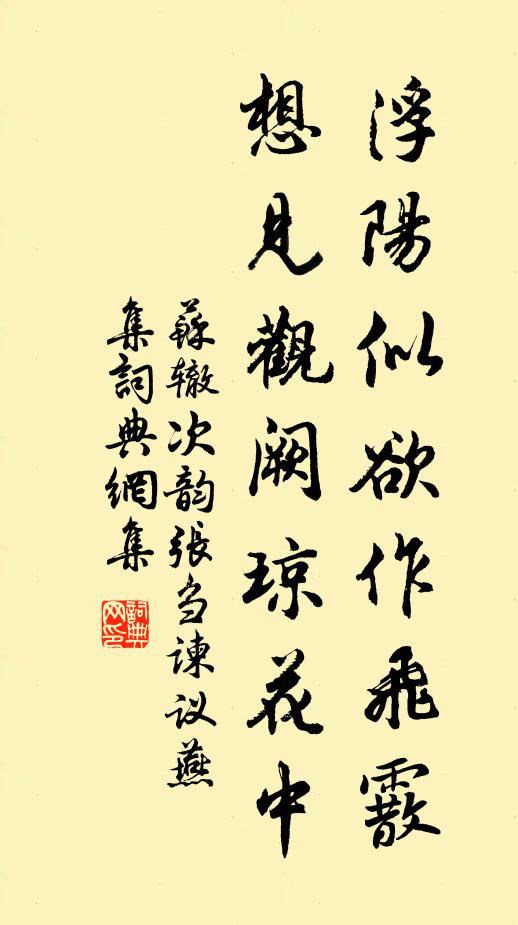 浮陽似欲作飛霰
想見觀阙琼花中
蘇辙次韵張刍諫议燕
集詞典網集
詞典
网印